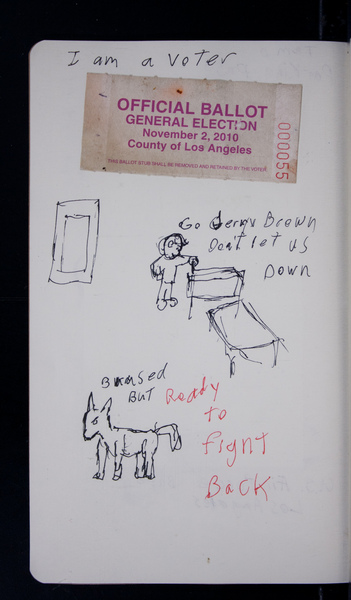 I am a voter
OFFICIAL BALLOT
GENERAL ELECTION
November 2, 2010
County of Los Angeles
THIS BALLOT STUB SHALL BE REMOVED AND RETAINED BY THE VOTER.
000055
Go Gerry Brown
Dont let us
Down
Bruised
But Ready
to
fight
Back